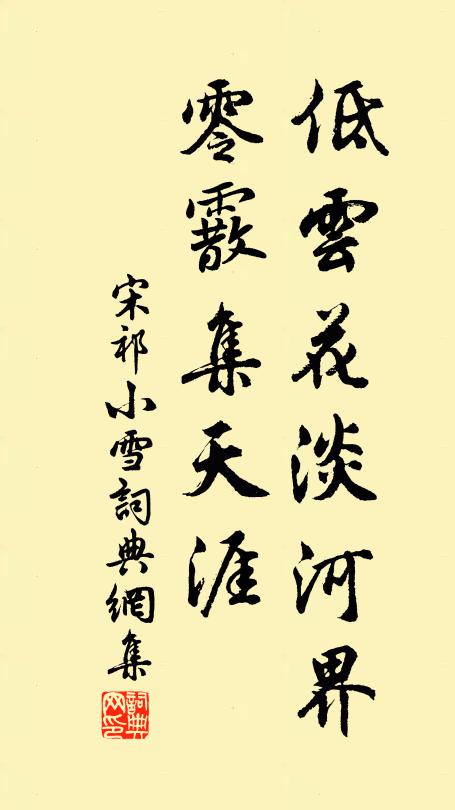 低雲花淡河界
零霰集天涯
宋祁小雪詞典網集
詞典网印